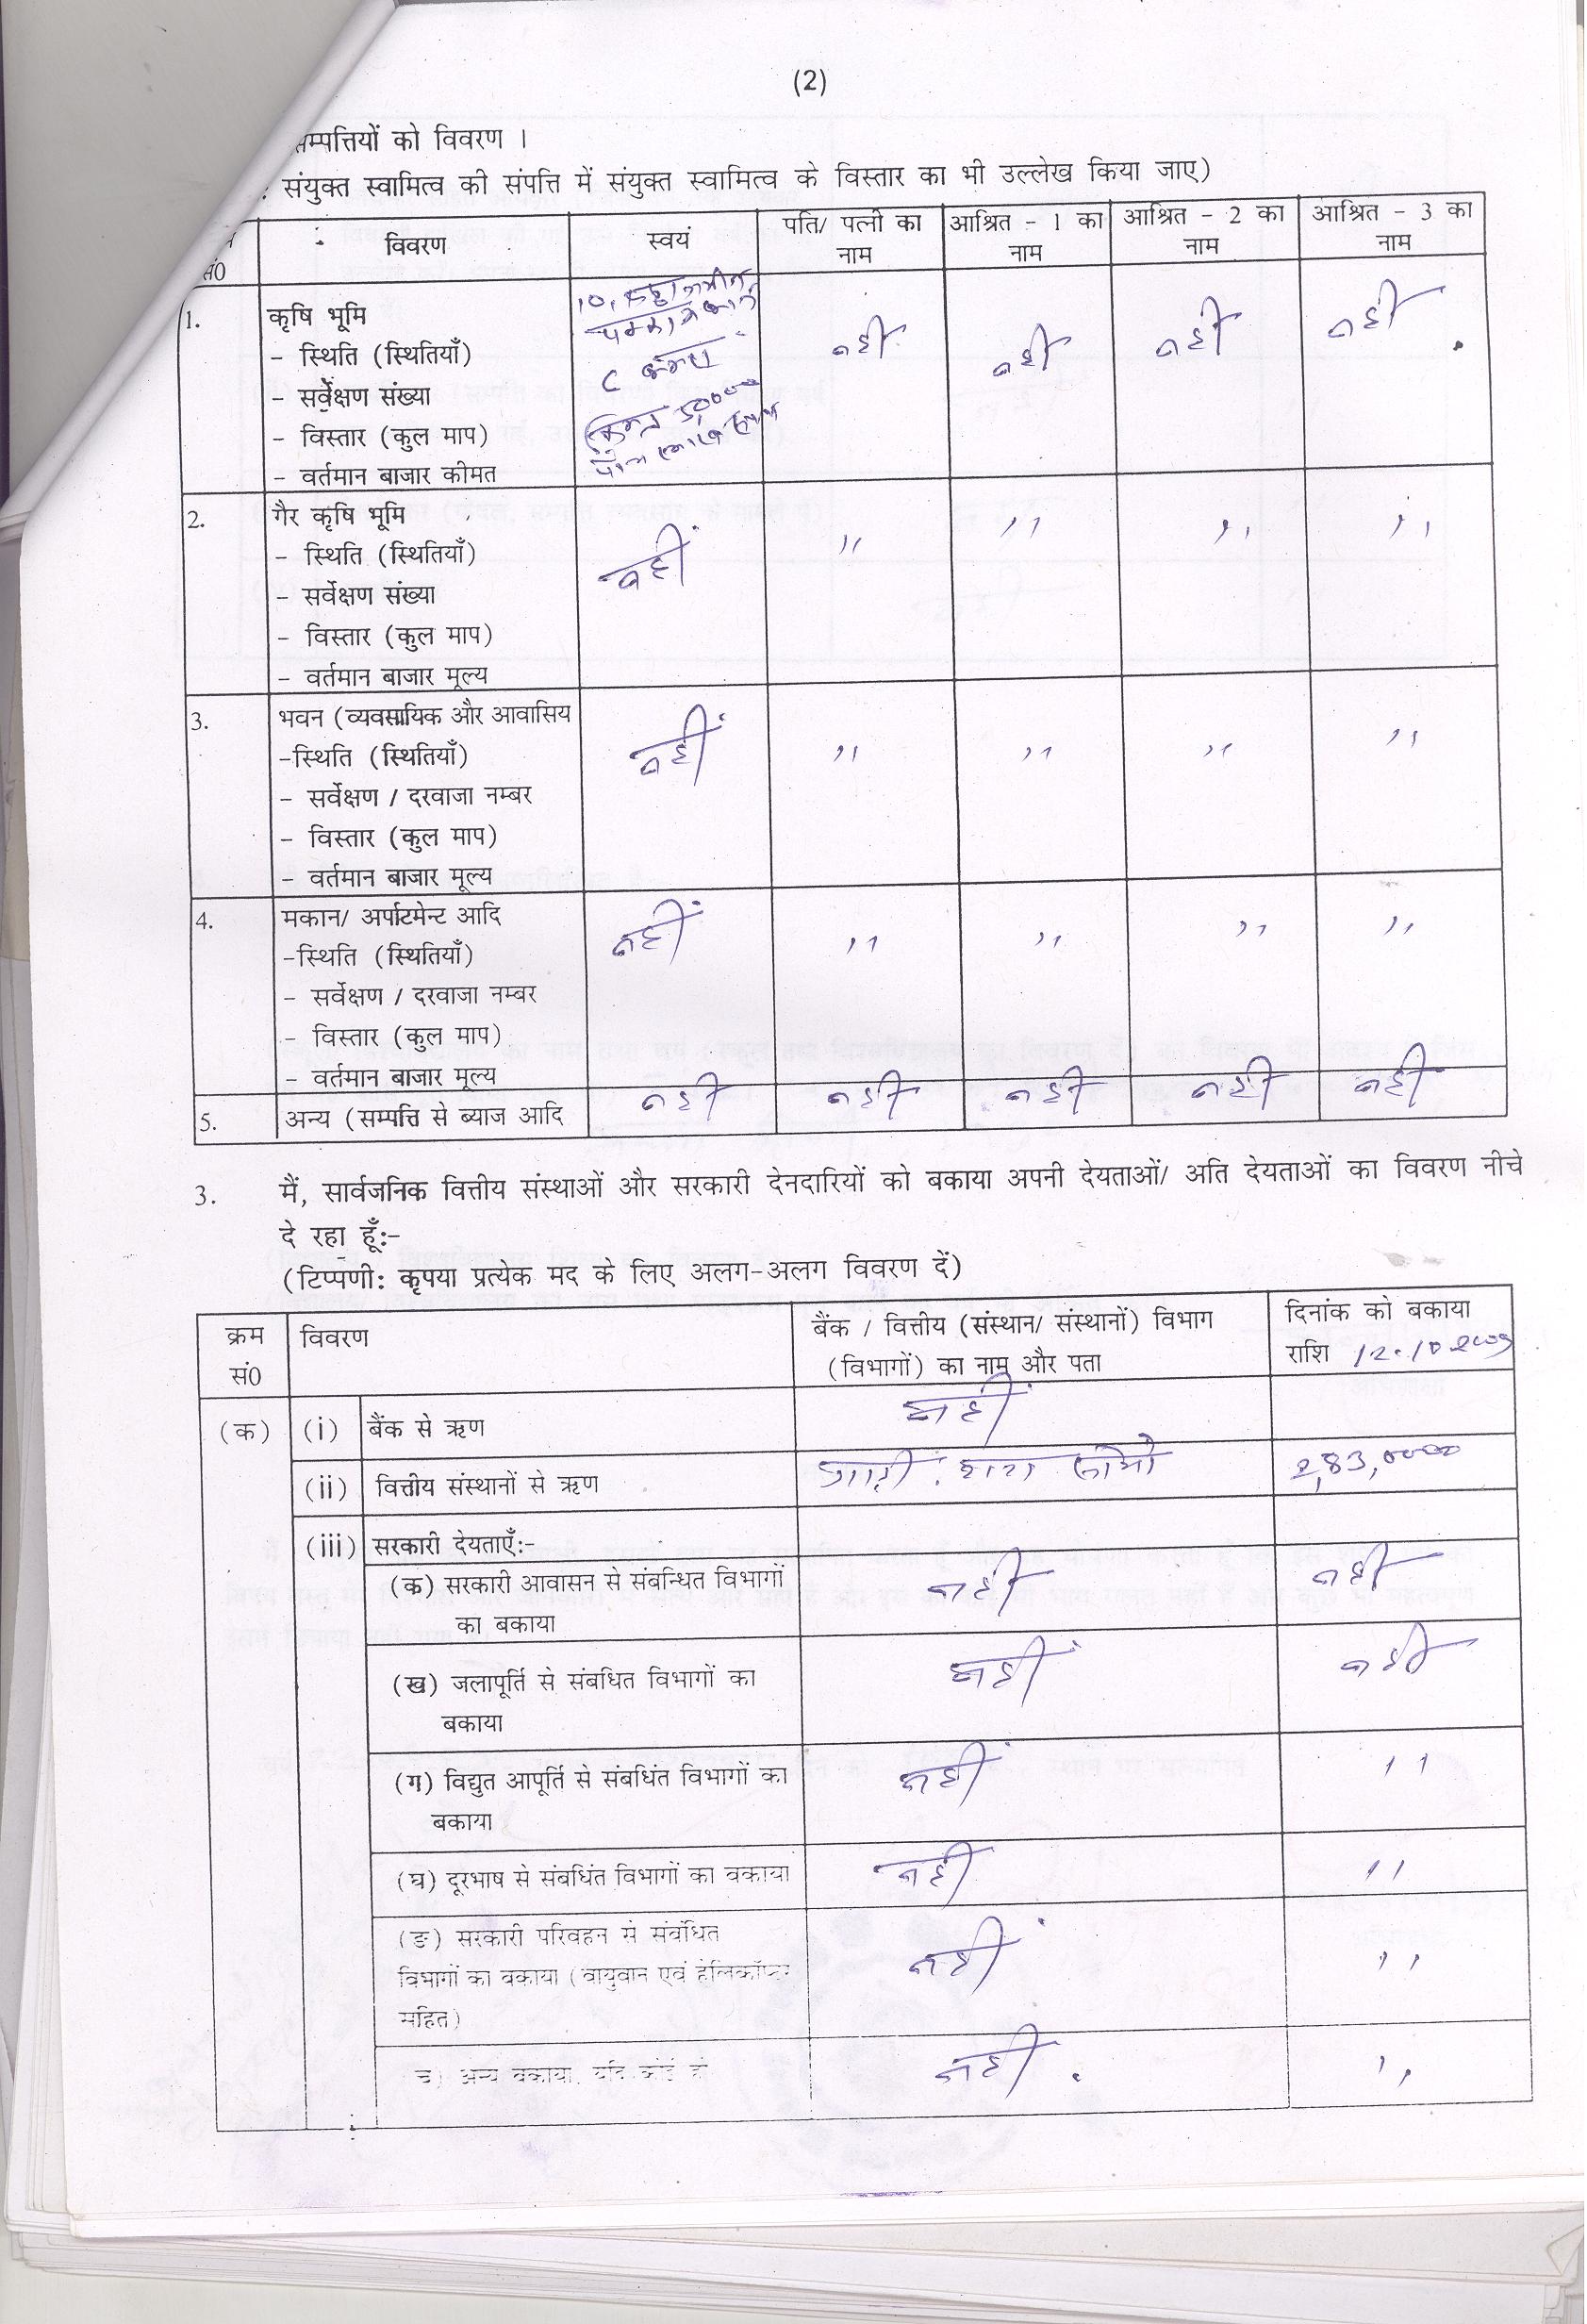 (2)
सम्पत्तियों को विवरण ।
: संयुक्त स्वामित्व की संपत्ति में संयुक्त स्वामित्व के विस्तार का भी उल्लेख किया जाए)
सं0 विवरण स्वयं पति/ पत्नी का नाम आश्रित - 1 का नाम आश्रित - 2 का नाम आश्रित - 3 का नाम
1. कृषि भूमि नहीं नहीं नहीं नहीं
- स्थिति (स्थितियाँ)
- सर्वेक्षण संख्या
- विस्तार (कुल माप)
- वर्तमान बाजार कीमत
2. गैर कृषि भूमि नहीं ,, ,, ,, ,,
- स्थिति (स्थितियाँ)
- सर्वेक्षण संख्या
- विस्तार (कुल माप)
- वर्तमान बाजार मूल्य
3. भवन (व्यवसायिक और आवासिय नहीं ,, ,, ,, ,,
-स्थिति (स्थितियाँ)
- सर्वेक्षण / दरवाजा नम्बर
- विस्तार (कुल माप)
- वर्तमान बाजार मूल्य
4. मकान/ अर्पाटमेन्ट आदि नहीं ,, ,, ,, ,,
-स्थिति (स्थितियाँ)
- सर्वेक्षण / दरवाजा नम्बर
- विस्तार (कुल माप)
- वर्तमान बाजार मूल्य
5. अन्य (सम्पत्ति से ब्याज आदि नहीं नहीं नहीं नहीं नहीं
3. मैं, सार्वजनिक वित्तीय संस्थाओं और सरकारी देनदारियों को बकाया अपनी देयताओं/ अति देयताओं का विवरण नीचे
दे रहा हूँ:-
(टिप्पणी: कृपया प्रत्येक मद के लिए अलग-अलग विवरण दें)
क्रम विवरण बैंक / वित्तीय (संस्थान/ संस्थानों) विभाग दिनांक को बकाया
सं0 (विभागों) का नाम और पता राशि 12.10.2009
(क) (i) बैंक से ऋण नहीं
(ii) वित्तीय संस्थानों से ऋण
(iii) सरकारी देयताएँ:-
(क) सरकारी आवासन से संबन्धित विभागों नहीं नहीं
का बकाया
(ख) जलापूर्ति से संबधित विभागों का नहीं नहीं
बकाया
(ग) विद्युत आपूर्ति से संबधिंत विभागों का नहीं ,,
बकाया
(घ) दूरभाष से संबधिंत विभागों का वकाया नहीं ,,
(ङ) सरकारी परिवहन से संबंधित नहीं ,,
विभागों का वकाया (वायुवान एवं हेलिकॉप्टर
सहित)
च) अन्य वकाया, यदि कोई हो नहीं ,,